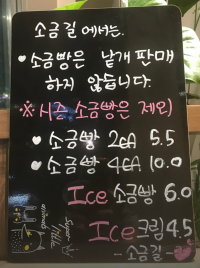 소금길 에서는.
• 소금빵은 낱개 판매
하지 않습니다.
※ 시즌 소금빵은 제외
• 소금빵 2EA 5.5
• 소금빵 4EA 10.0
Ice 소금빵 6.0
Ice크림 4.5
- 소금길 -